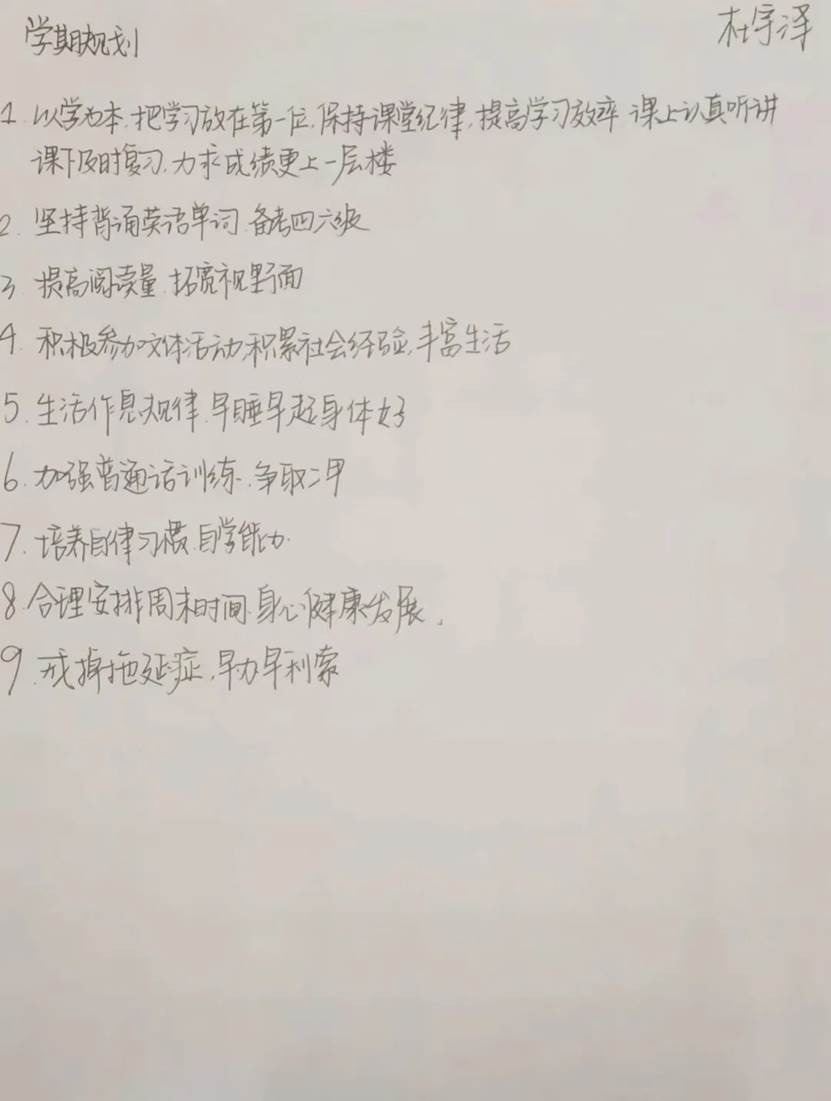 学期规划
杜宇泽
1. 以学为本,把学习放在第一位,保持课堂纪律,提高学习效率 课上认真听讲
课下及时复习,力求成绩更上一层楼
2. 坚持背诵英语单词,备考四六级
3 提高阅读量,拓宽视野面
4. 积极参加文体活动,积累社会经验,丰富生活
5. 生活作息规律,早睡早起身体好
6. 加强普通话训练,争取二甲
7. 培养自律习惯,自学能力.
8.合理安排周末时间,身心健康发展.
9.戒掉拖延症,早办早利索